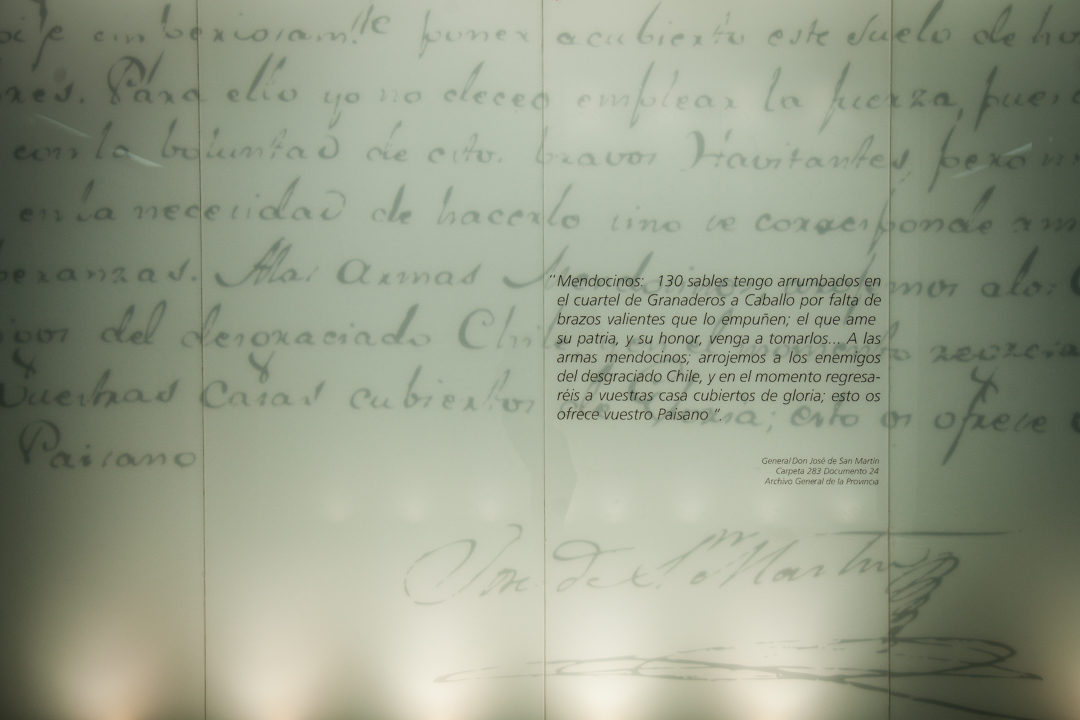 poner acubierto este Suelo de
Para ello yo no deceo emplear la fuerza, pues
con la boluntad de esto. bravos Havitantes, pero
en la necesidad de hacerlo sino se corresponde
peranzas. Alas Armas
del desgraciado Chile
Vuestras Casas cubiertos de Gloria; esto os ofrece
Paisano
"Mendocinos: 130 sables tengo arrumbados en
el cuartel de Granaderos a Caballo por falta de
brazos valientes que lo empuñen; el que ame
su patria, y su honor, venga a tomarlos... A las
armas mendocinos; arrojemos a los enemigos
del desgraciado Chile, y en el momento regresa-
réis a vuestras casa cubiertos de gloria; esto os
ofrece vuestro Paisano ".
General Don José de San Martín
Carpeta 283 Documento 24
Archivo General de la Provincia
Jose de Sn Martin